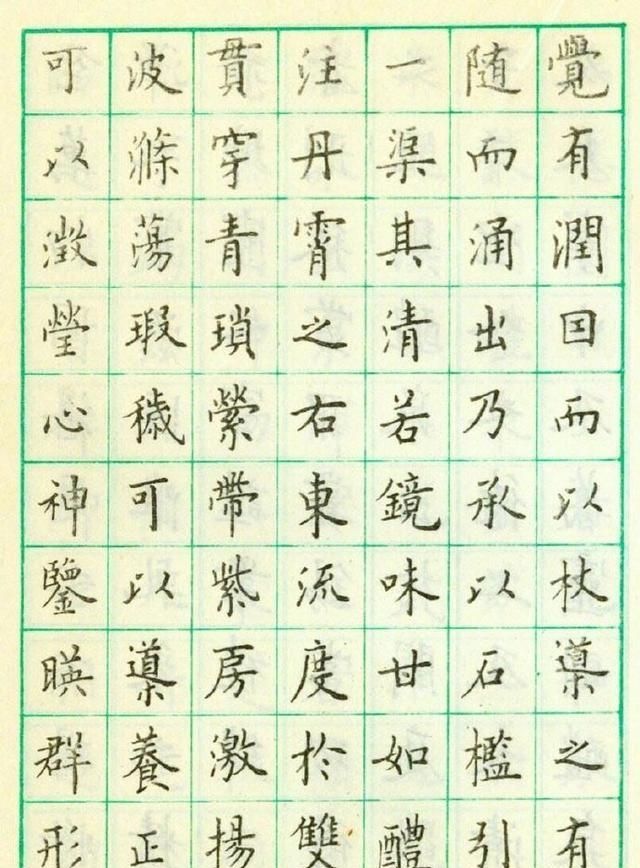 覺有潤囙而以杖導之有
随而涌出乃承以石檻引
一渠其清若鏡味甘如醴
注丹霄之右東流度於雙
貫穿青瑣縈帶紫房激揚
波滌蕩瑕穢可以導養正
可以澂瑩心神鑒暎群形